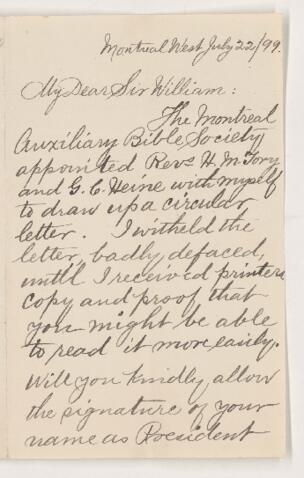 Montreal West July 22/99.
My Dear Sir William:
The Montreal
Auxiliary Bible Society
appointed Revs. H. M. Tory
and G. C. Heine with myself
to draw up a circular
letter. I witheld the
letter, badly defaced,
until I received printers
copy and proof that
you might be able
to read it more easily.
Will you kindly allow
the signature of your
name as President